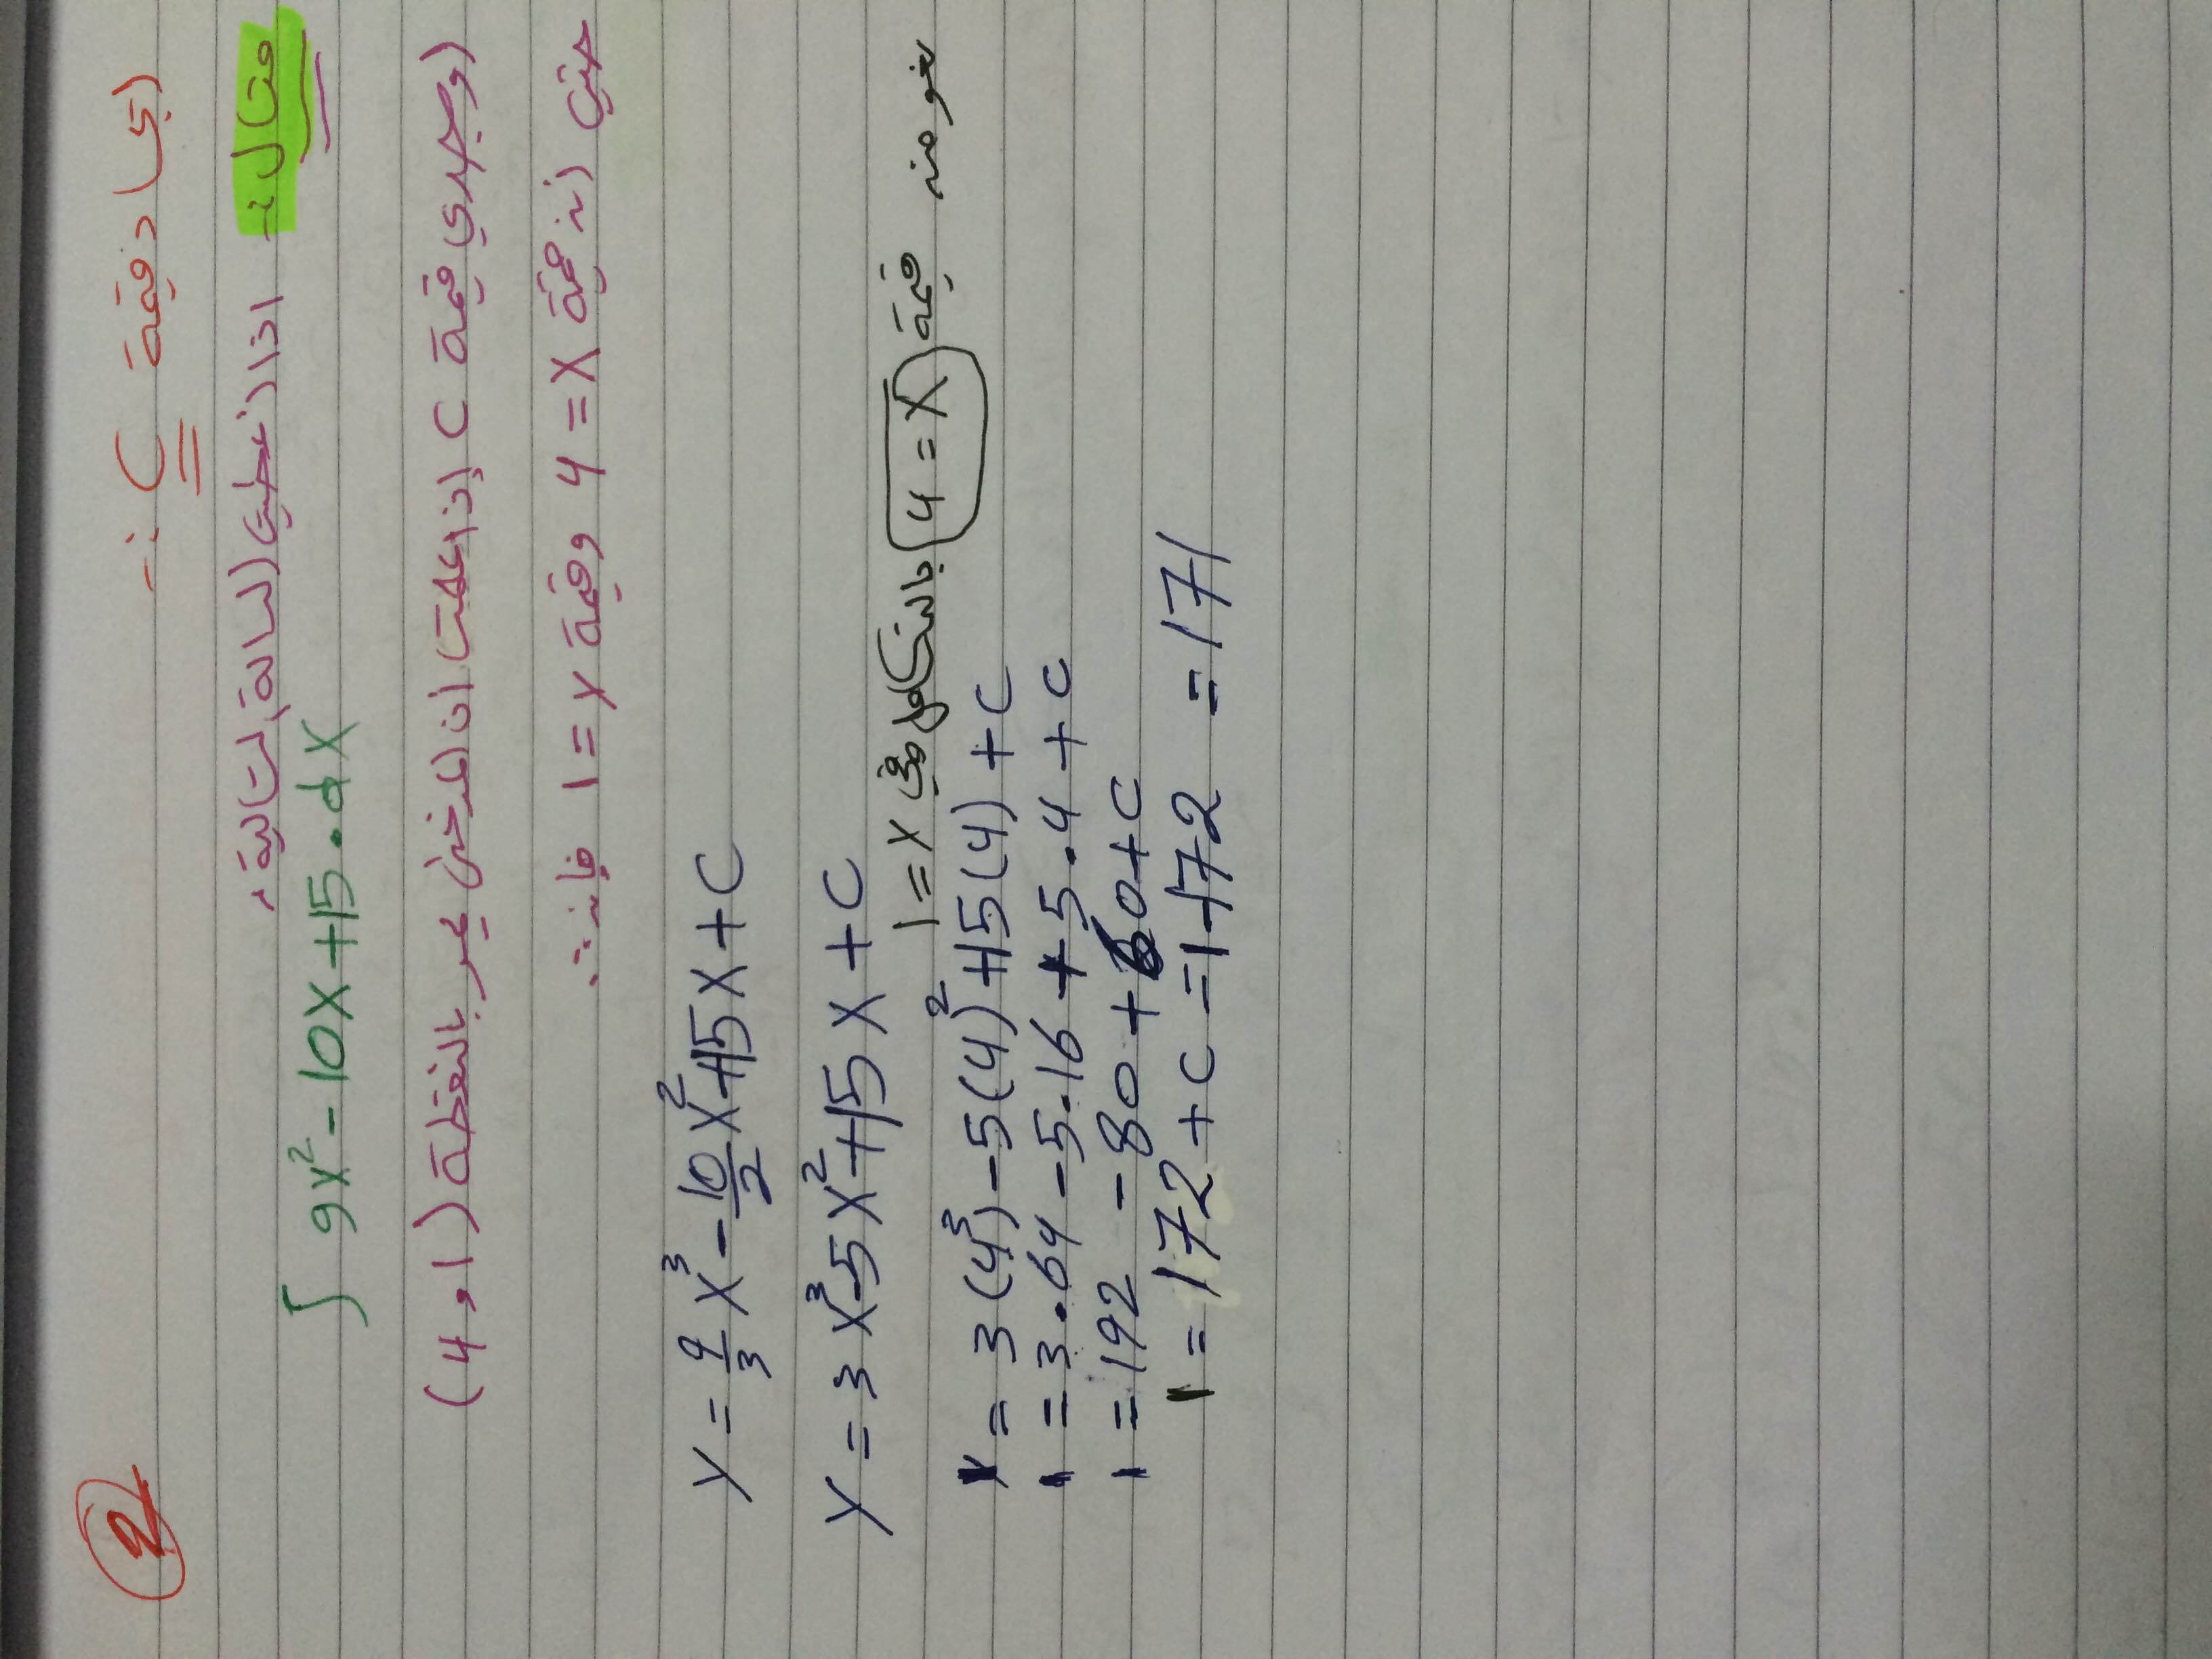 ②
إيجاد قيمة C :-
مثال :- اذا أعطيت الدالة التالية،
∫ 9x² - 10x + 15 . dx
اوجدي قيمة C إذا علمت ان المنحنى يمر بالنقطة (1 و 4)
حيث إن قيمة x = 4 وقيمة y = 1 فإن :.
y = 9/3 x³ - 10/2 x² + 15x + C
y = 3x³ - 5x² + 15x + C
نعوض قيمة x = 4 بالتكامل وفي y = 1
1 = 3(4³) - 5(4)² + 15(4) + C
1 = 3.64 - 5.16 + 15.4 + C
1 = 192 - 80 + 60 + C
1 = 172 + C = 1 - 172 = 171